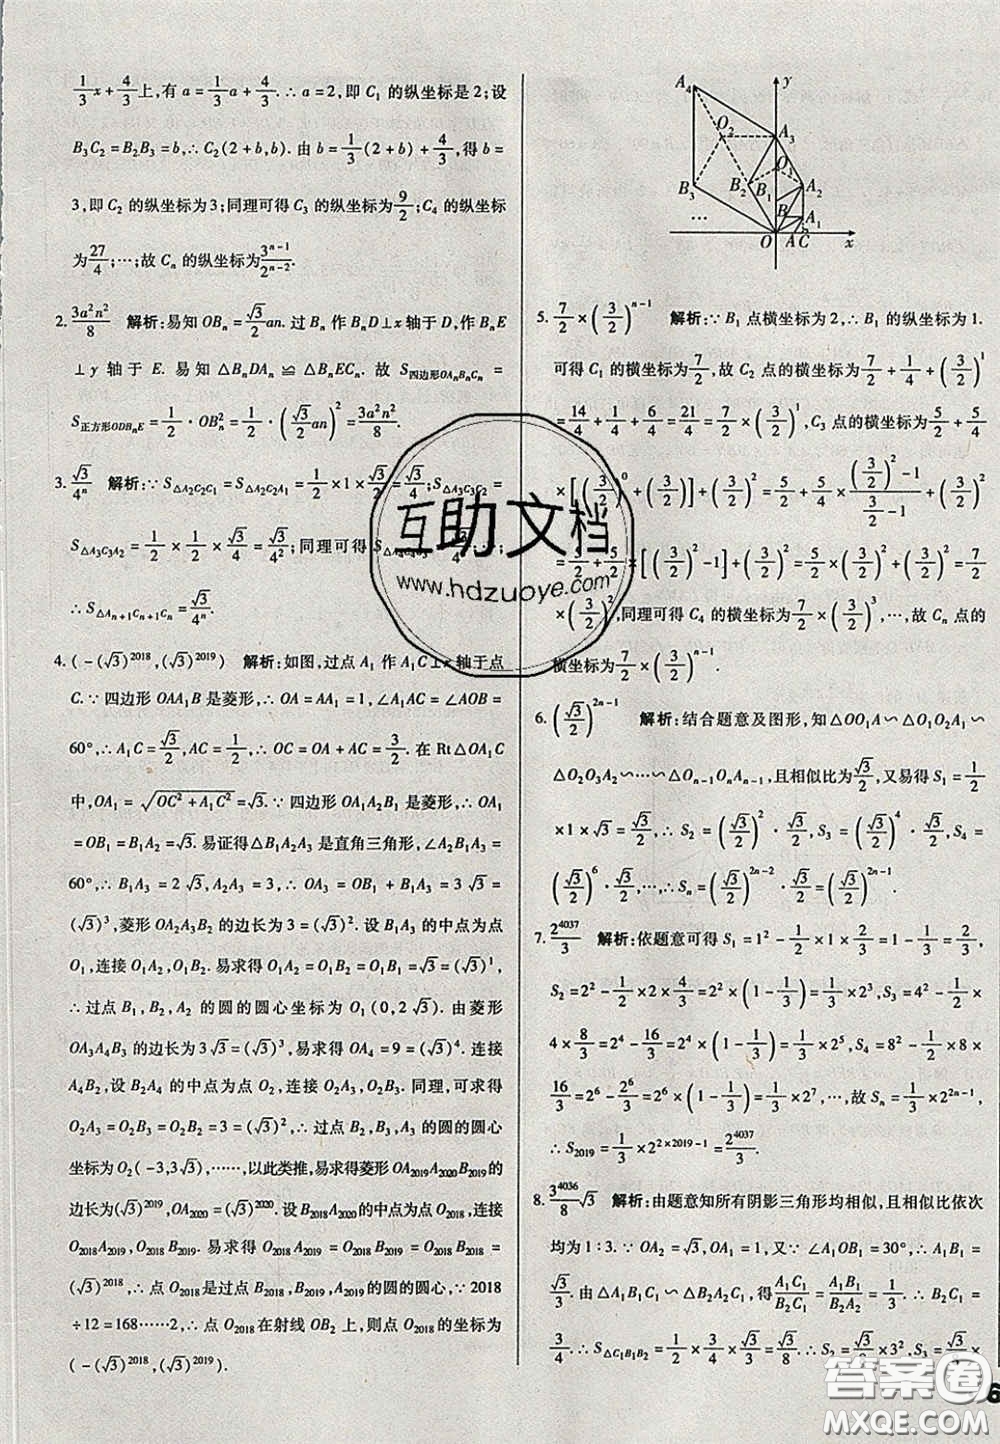 1/3 x+4/3上,有 a=1/3 a+4/3.∴a=2,即 C₁ 的纵坐标是2;设
B₃C₂=B₂B₃=b,∴C₂(2+b,b).由 b=1/3(2+b)+4/3,得 b=
3,即 C₂ 的纵坐标为3;同理可得 C₃ 的纵坐标为9/2;C₄ 的纵坐标
为27/4;…;故 Cₙ 的纵坐标为3ⁿ⁻¹/2ⁿ⁻².
2. 3a²n²/8 解析:易知 OBₙ=√3/2 an.过 Bₙ 作 BₙD⊥x 轴于 D,作 BₙE
⊥y 轴于 E.易知 △BₙDAₙ≌△BₙECₙ.故 S四边形OAₙBₙCₙ=
S正方形ODBₙE=1/2·OBₙ²=1/2·(√3/2 an)²=3a²n²/8.
3. √3/4ⁿ 解析:∵S△A₂C₂C₁=S△A₂C₂A₁=1/2×1×√3/2=√3/4;S△A₃C₃C₂=
S△A₃C₃A₂=1/2×1/2×√3/4=√3/4²;同理可得 S
∴S△Aₙ₊₁Cₙ₊₁Cₙ=√3/4ⁿ.
4. (-(√3)²⁰¹⁸,(√3)²⁰¹⁹) 解析:如图,过点 A₁ 作 A₁C⊥x 轴于点
C.∵四边形 OAA₁B 是菱形,∴OA=AA₁=1,∠A₁AC=∠AOB=
60°,∴A₁C=√3/2,AC=1/2,∴OC=OA+AC=3/2.在 Rt△OA₁C
中,OA₁=√(OC²+A₁C²)=√3.∵四边形 OA₁A₂B₁ 是菱形,∴OA₁
=OB₁=A₁A₂=√3.易证得△B₁A₂A₃ 是直角三角形,∠A₂B₁A₃=
60°,∴B₁A₃=2√3,A₂A₃=3,∴OA₃=OB₁+B₁A₃=3√3=
(√3)³,∴菱形 OA₂A₃B₂ 的边长为3=(√3)².设 B₁A₃ 的中点为点
O₁,连接 O₁A₂,O₁B₂.易求得 O₁A₂=O₁B₂=O₁B₁=√3=(√3)¹,
∴过点 B₁,B₂,A₂ 的圆的圆心坐标为 O₁(0,2√3).由菱形
OA₃A₄B₃ 的边长为3√3=(√3)³.易求得 OA₄=9=(√3)⁴.连接
A₄B₂,设 B₂A₄ 的中点为点 O₂,连接 O₂A₃,O₂B₃.同理,可求得
O₂A₃=O₂B₃=O₂B₂=3=(√3)²,∴过点 B₂,B₃,A₃ 的圆的圆心
坐标为 O₂(-3,3√3),……,以此类推,易求得菱形 OA₂₀₁₉A₂₀₂₀B₂₀₁₉
的边长为(√3)²⁰¹⁹,OA₂₀₂₀=(√3)²⁰²⁰.设 B₂₀₁₈A₂₀₂₀的中点为点 O₂₀₁₈,连接
O₂₀₁₈A₂₀₁₉,O₂₀₁₈B₂₀₁₉.易求得 O₂₀₁₈A₂₀₁₉=O₂₀₁₈B₂₀₁₉=O₂₀₁₈B₂₀₁₈=
(√3)²⁰¹⁸,∴点 O₂₀₁₈是过点 B₂₀₁₈,B₂₀₁₉,A₂₀₁₉的圆的圆心,∵2018
÷12=168……2,∴点 O₂₀₁₈在射线 OB₂ 上,则点 O₂₀₁₈的坐标为
(-(√3)²⁰¹⁸,(√3)²⁰¹⁹).
A₄ y
O₂ A₃
O₁
B₃ B₂ B₁ A₂
… B A₁
O A C x
5. 7/2×(3/2)ⁿ⁻¹ 解析:∵B₁ 点横坐标为2,∴B₁ 的纵坐标为1.
可得 C₁ 的横坐标为7/2,故 C₂ 点的横坐标为7/2+1/4+(3/2)²
=14/4+1/4+6/4=21/4=7/2×(3/2)¹,C₃ 点的横坐标为5/2+5/4
×[(3/2)⁰+(3/2)]+(3/2)
=5/2+5/4×[(3/2)²-1]/(3/2-1)+(3/2)²
=5/2+5/2×[(3/2)²-1]+(3/2)²=7/2
×(3/2)²,同理可得 C₄ 的横坐标为7/2×(3/2)³,…,故 Cₙ 点的
横坐标为7/2×(3/2)ⁿ⁻¹.
6. (√3/2)²ⁿ⁻¹ 解析:结合题意及图形,知△OO₁A∽△O₁O₂A₁∽
△O₂O₃A₂∽…∽△Oₙ₋₁OₙAₙ₋₁,且相似比为√3/2,又易得 S₁=1/2
×1×√3=√3/2.∴S₂=(√3/2)²·√3/2,S₃=(√3/2)⁴·√3/2,S₄=
(√3/2)⁶·√3/2,…,∴Sₙ=(√3/2)²ⁿ⁻²·√3/2=(√3/2)²ⁿ⁻¹.
7. 2⁴⁰³⁷/3 解析:依题意可得 S₁=1²-1/2×1×2/3=1-1/3=2/3,
S₂=2²-1/2×2×4/3=2²×(1-1/3)=1/3×2³,S₃=4²-1/2×
4×8/3=2⁴-16/3=2⁴×(1-1/3)=1/3×2⁵,S₄=8²-1/2×8×
16/3=2⁶-2⁶/3=2⁶×(1-1/3)=1/3×2⁷,…,故 Sₙ=1/3×2²ⁿ⁻¹,
∴S₂₀₁₉=1/3×2²ˣ²⁰¹⁹⁻¹=2⁴⁰³⁷/3.
8. 3⁴⁰³⁶/8 √3 解析:由题意知所有阴影三角形均相似,且相似比依次
均为1:3.∵OA₂=√3,OA₁=1,又∵∠A₁OB₁=30°,∴A₁B₁=
√3/3.由△A₁B₁C₁∽△B₂A₂C₁,得A₁C₁/B₂C₁=A₁B₁/B₂A₂=1/3.∴B₂C₁=
3/4.∴S△C₁B₁B₂=1/2×√3/3×3/4=√3/8.∴S₂=√3/8×3²,S₃=√3/8
互助文档
www.hdzuoye.com
答案圈
MXQE.COM
6